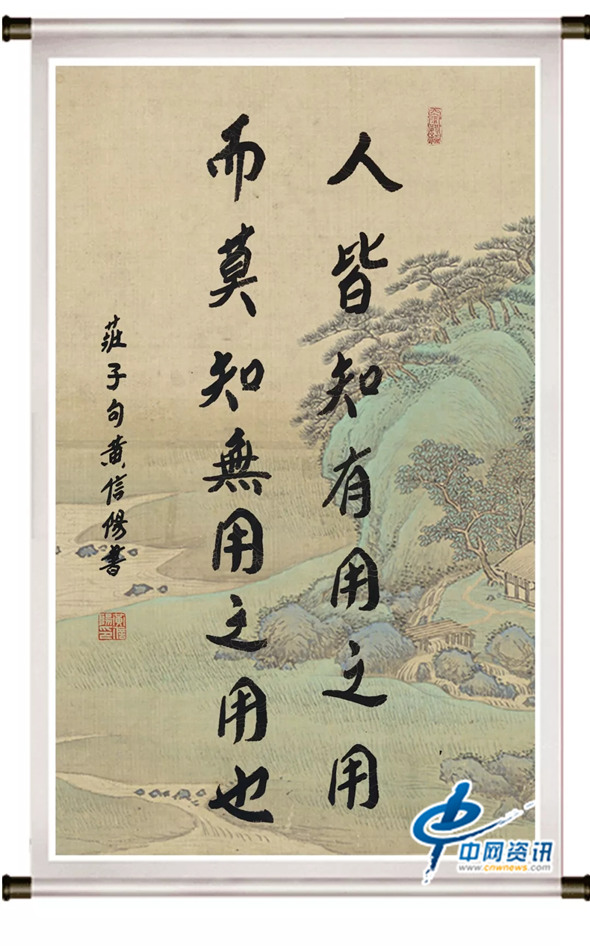 人皆知有用之用
而莫知無用之用也
莊子句黄信陽書
中网资讯
www.cnwnews.com